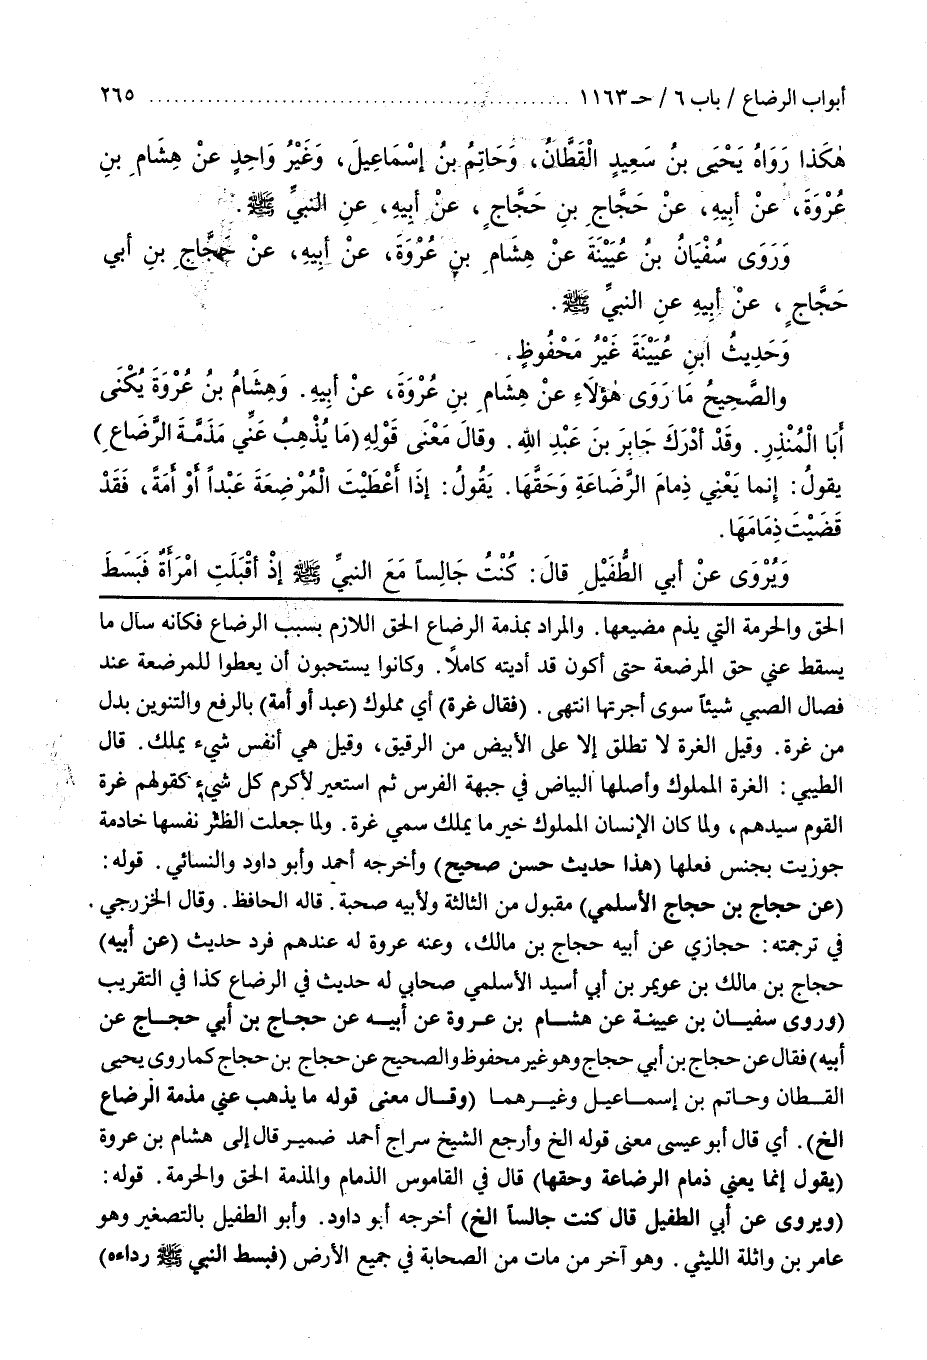 أبواب الرضاع / باب ٦ / حـ ١١٦٣ ................................................ ٢٦٥
هٰكَذا رَوَاهُ يَحْيَى بنُ سَعِيدٍ الْقَطَّانُ، وَحَاتِمُ بنُ إسْمَاعِيلَ، وَغَيْرُ وَاحِدٍ عنْ هِشَامِ بنِ
عُرْوَةَ، عنْ أبيِهِ، عنْ حَجَّاجِ بنِ حَجَّاجٍ، عنْ أبيِهِ، عنِ النبيِّ ﷺ.
وَرَوَى سُفْيَانُ بنُ عُيَيْنَةَ عنْ هِشَامِ بنِ عُرْوَةَ، عنْ أبيِهِ، عنْ حَجَّاجِ بنِ أبي
حَجَّاجٍ، عنْ أبيِهِ عنِ النبيِّ ﷺ.
وَحَدِيثُ ابنِ عُيَيْنَةَ غَيْرُ مَحْفُوظٍ.
والصَّحِيحُ مَا رَوَى هٰؤلَاءِ عنْ هِشَامِ بنِ عُرْوَةَ، عنْ أبيِهِ. وَهِشَامُ بنُ عُرْوَةَ يُكْنَى
أبَا الْمُنْذِرِ. وقَدْ أدْرَكَ جَابِرَ بنَ عَبْدِ اللهِ. وقالَ مَعْنَى قَوْلِهِ (مَا يُذْهِبُ عَنِّي مَذَمَّةَ الرَّضَاعِ)
يقولُ: إنما يَعْنِي ذِمامَ الرَّضَاعَةِ وَحَقَّهَا. يَقُولُ: إذَا أعْطَيْتَ الْمُرْضِعَةَ عَبْداً أوْ أمَةً، فَقَدْ
قَضَيْتَ ذِمَامَهَا.
وَيُرْوَى عنْ أبي الطُّفَيْلِ قالَ: كُنْتُ جَالِساً مَعَ النبيِّ ﷺ إذْ أقْبَلَتِ امْرَأةٌ فَبَسَطَ
الحق والحرمة التي يذم مضيعها. والمراد بمذمة الرضاع الحق اللازم بسبب الرضاع فكأنه سأل ما
يسقط عني حق المرضعة حتى أكون قد أديته كاملاً. وكانوا يستحبون أن يعطوا للمرضعة عند
فصال الصبي شيئاً سوى أجرتها انتهى. (فقال غرة) أي مملوك (عبد أو أمة) بالرفع والتنوين بدل
من غرة. وقيل الغرة لا تطلق إلا على الأبيض من الرقيق، وقيل هي أنفس شيء يملك. قال
الطيبي: الغرة المملوك وأصلها البياض في جبهة الفرس ثم استعير لأكرم كل شيء كقولهم غرة
القوم سيدهم، ولما كان الإنسان المملوك خير ما يملك سمي غرة. ولما جعلت الظئر نفسها خادمة
جوزيت بجنس فعلها (هذا حديث حسن صحيح) وأخرجه أحمد وأبو داود والنسائي. قوله:
(عن حجاج بن حجاج الأسلمي) مقبول من الثالثة ولأبيه صحبة. قاله الحافظ. وقال الخزرجي.
في ترجمته: حجازي عن أبيه حجاج بن مالك، وعنه عروة له عندهم فرد حديث (عن أبيه)
حجاج بن مالك بن عويمر بن أبي أسيد الأسلمي صحابي له حديث في الرضاع كذا في التقريب
(وروى سفيان بن عيينة عن هشام بن عروة عن أبيه عن حجاج بن أبي حجاج عن
أبيه) فقال عن حجاج بن أبي حجاج وهو غير محفوظ والصحيح عن حجاج بن حجاج كما روى يحيى
القطان وحاتم بن إسماعيل وغيرهما (وقال معنى قوله ما يذهب عني مذمة الرضاع
الخ). أي قال أبو عيسى معنى قوله الخ وأرجع الشيخ سراج أحمد ضمير قال إلى هشام بن عروة
(يقول إنما يعني ذمام الرضاعة وحقها) قال في القاموس الذمام والمذمة الحق والحرمة. قوله:
(ويروى عن أبي الطفيل قال كنت جالساً الخ) أخرجه أبو داود. وأبو الطفيل بالتصغير وهو
عامر بن واثلة الليثي. وهو آخر من مات من الصحابة في جميع الأرض (فبسط النبي ﷺ رداءه)